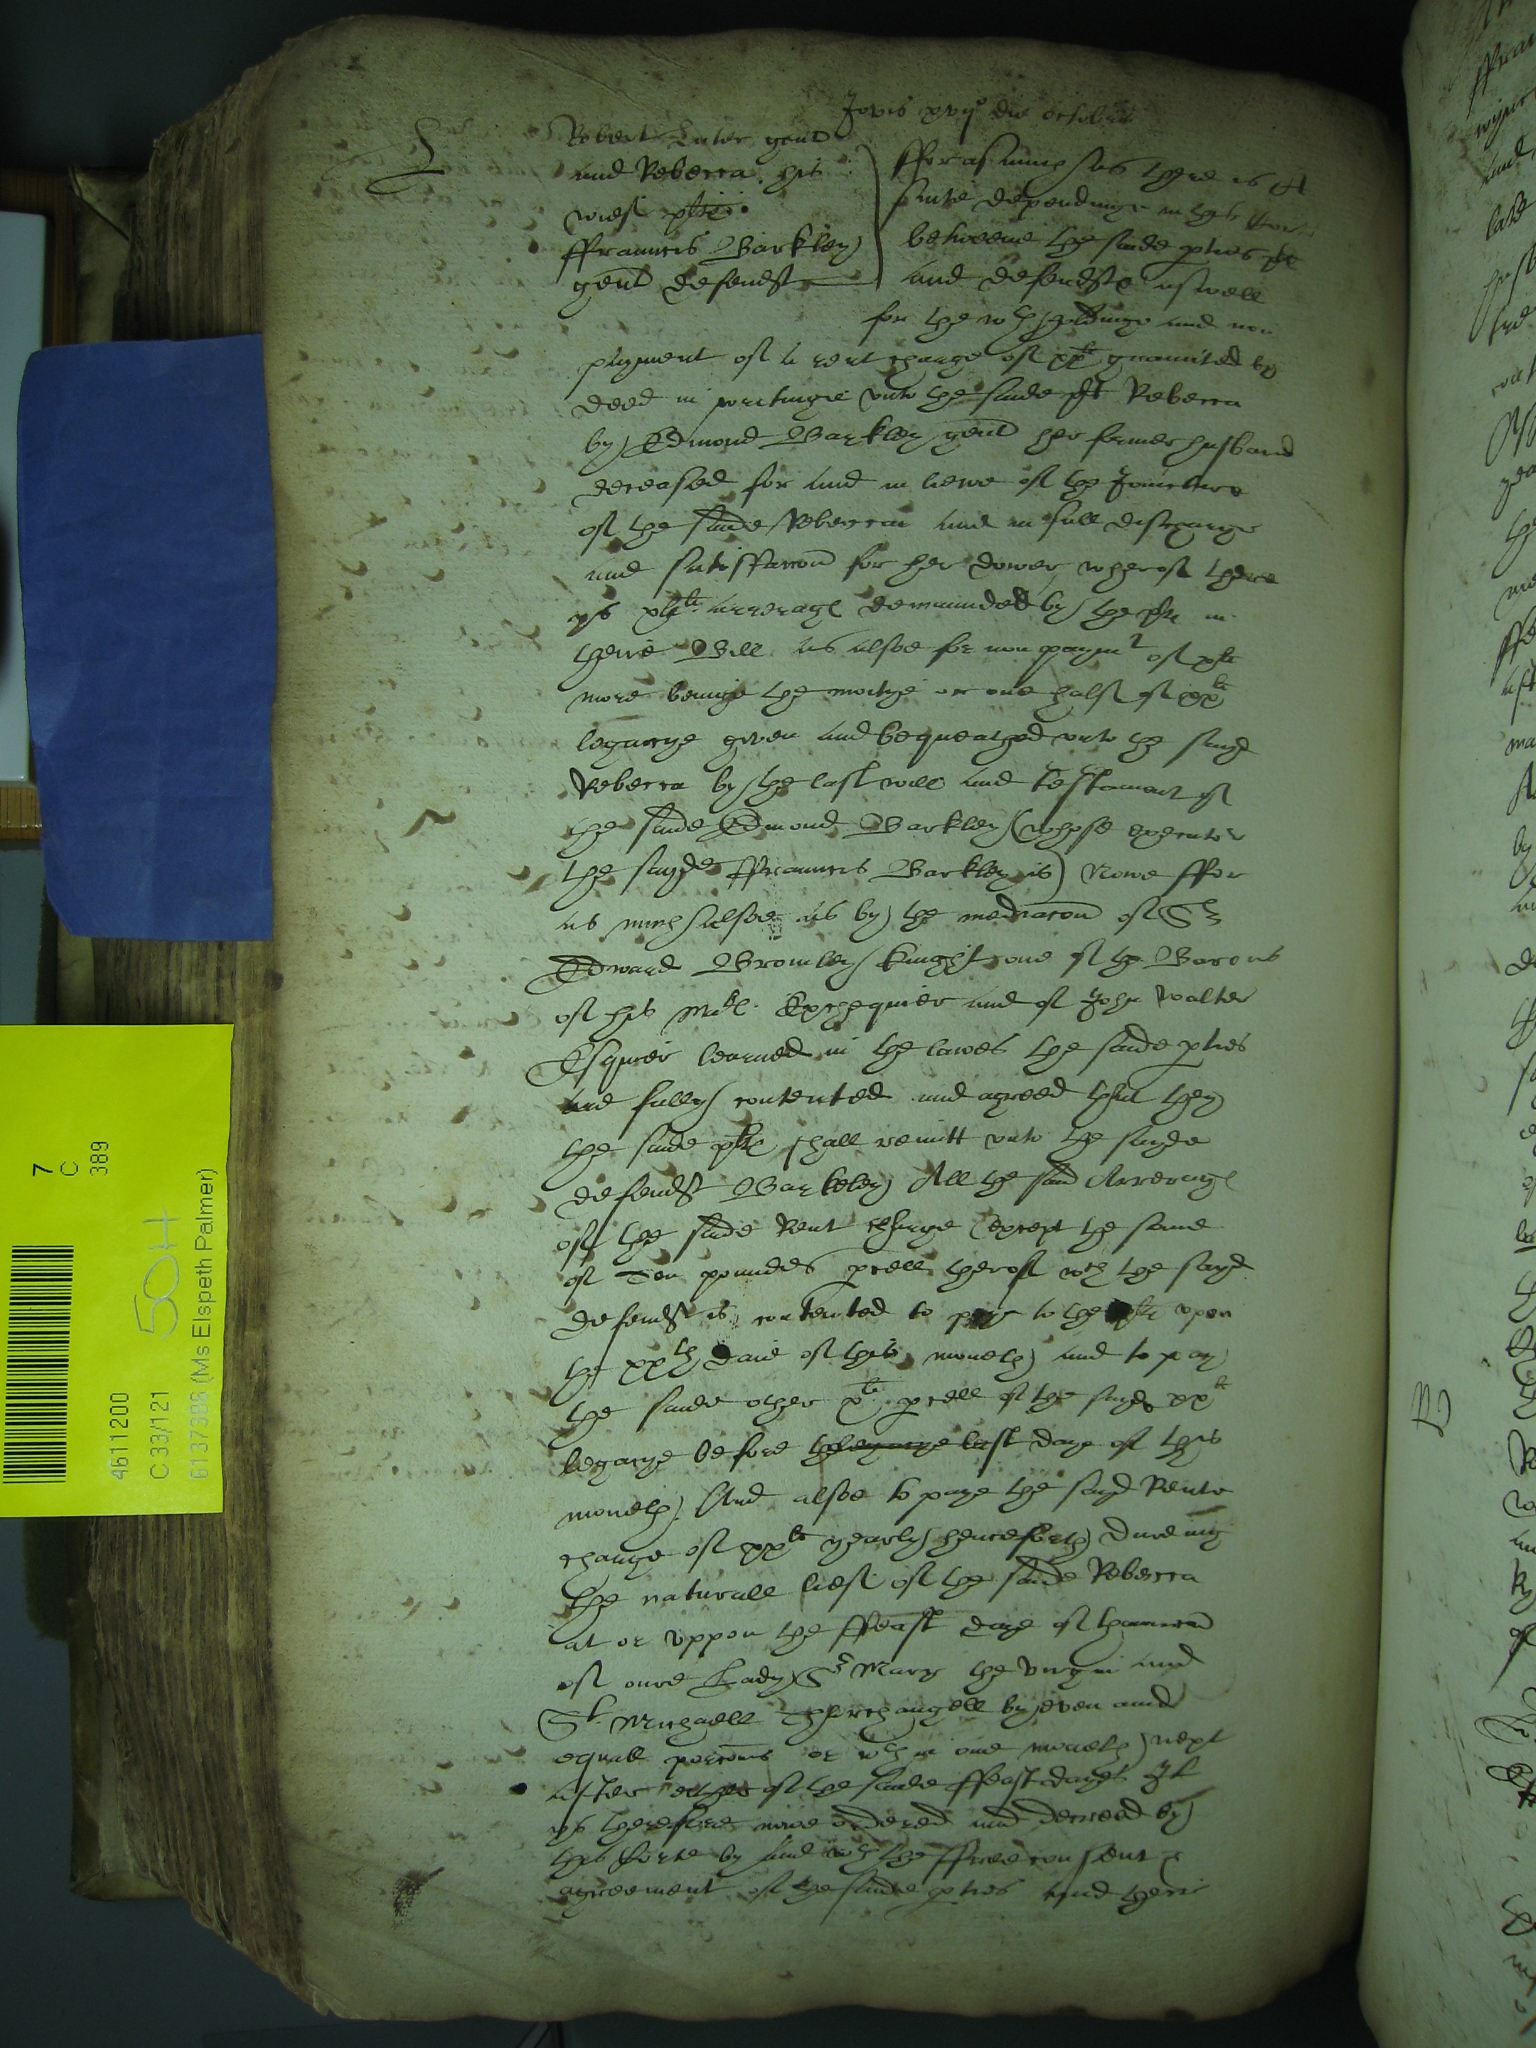 Jovis xvij° die Octobris
Robert gent
and Rebecca his
wief plt
ffrauncis Barkley
gent defendt
fforasmuch as there is a
sute dependinge in this Court
betweene the saide pties plt
and defendt aswell
for the wthholdinge and non
payment of a rent charge of xxli graunted by
deed in writinge unto the saide plt Rebecca
by Edmond Barkley gent her former husband
deceased for and in liewe of the Joincture
of the saide Rebecca and in full discharge
and satisfaccon for her dower, wherof there
ys arrerages demaunded by the plts in
theire Bill as alsoe for non paymt of xli
more beinge the moitye or one half of xxli
legacye given and bequeathed unto the sayd
Rebecca by the last will and testament of
the saide Edmond Barkley (whose executor
the sayde ffrauncis Barkley is) Nowe ffor
as much alsoe as by the mediacon of Sr
Edward Bromley knight one of the Barons
of his Mats Exchequier and of John Walter
Esquier learned in the lawes the saide pties
are fully contented and agreed that they
the saide plts shall remitt unto the sayde
defendt Barkley All the said Arrerages
of the saide Rent charge (except the some
of Ten poundes pcell therof wch the sayd
defendt is contented to pay to the plts upon
the xxth daie of this moneth and to pay
the saide other xli pcell of the sayd xxli
legacye before the last daye of this
moneth. And alsoe to paye the sayd Rente
charge of xxli yearly henceforth dureing
the naturall lief of the saide Rebecca
at or uppon the ffeast daye of
of oure Lady St Mary the virgin and
St Michaell Tharchangell by even and
equall porcons or wthin one moneth next
after either of the saide ffeast dayes It
ys therefore nowe ordered and decreed by
this Corte by and wth the ffree consent &
agreement of the saide pties and their
4611200
C 33/121
6137398 (Ms Elspeth Palmer)
7
C
389
50H